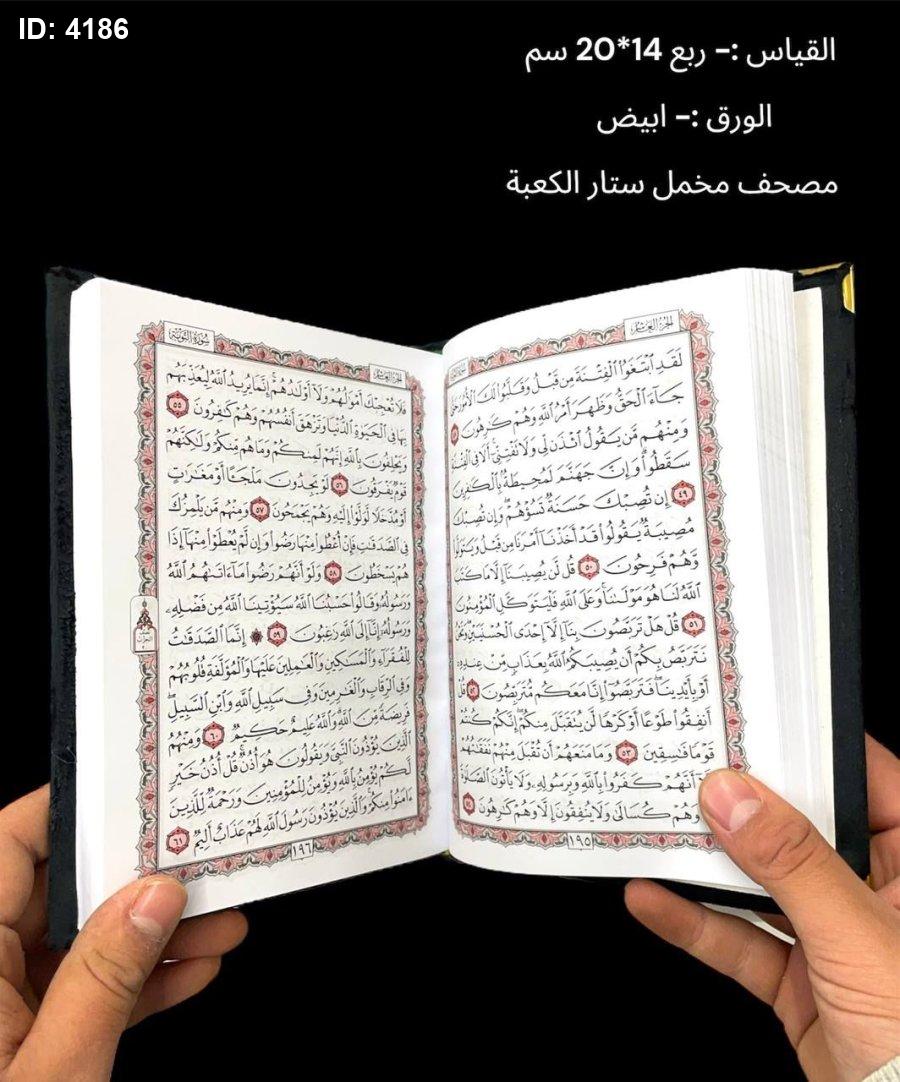 ID: 4186
القياس :- ربع 14*20 سم
الورق :- ابيض
مصحف مخمل ستار الكعبة
الجزء العاشر
لَقَدِ ٱبْتَغَوُا۟ ٱلْفِتْنَةَ مِن قَبْلُ وَقَلَّبُوا۟ لَكَ ٱلْأُمُورَ حَتَّىٰ
جَآءَ ٱلْحَقُّ وَظَهَرَ أَمْرُ ٱللَّهِ وَهُمْ كَٰرِهُونَ ٤٨
وَمِنْهُم مَّن يَقُولُ ٱئْذَن لِّى وَلَا تَفْتِنِّىٓ أَلَا فِى ٱلْفِتْنَةِ
سَقَطُوا۟ وَإِنَّ جَهَنَّمَ لَمُحِيطَةٌۢ بِٱلْكَٰفِرِينَ
٤٩ إِن تُصِبْكَ حَسَنَةٌ تَسُؤْهُمْ وَإِن تُصِبْكَ
مُصِيبَةٌ يَقُولُوا۟ قَدْ أَخَذْنَآ أَمْرَنَا مِن قَبْلُ وَيَتَوَلَّوا۟
وَّهُمْ فَرِحُونَ ٥٠ قُل لَّن يُصِيبَنَآ إِلَّا مَا كَتَبَ
ٱللَّهُ لَنَا هُوَ مَوْلَىٰنَا وَعَلَى ٱللَّهِ فَلْيَتَوَكَّلِ ٱلْمُؤْمِنُونَ
٥١ قُلْ هَلْ تَرَبَّصُونَ بِنَآ إِلَّآ إِحْدَى ٱلْحُسْنَيَيْنِ وَنَحْنُ
نَتَرَبَّصُ بِكُمْ أَن يُصِيبَكُمُ ٱللَّهُ بِعَذَابٍ مِّنْ عِندِهِۦٓ
أَوْ بِأَيْدِينَا فَتَرَبَّصُوٓا۟ إِنَّا مَعَكُم مُّتَرَبِّصُونَ ٥٢ قُلْ
أَنفِقُوا۟ طَوْعًا أَوْ كَرْهًا لَّن يُتَقَبَّلَ مِنكُمْ إِنَّكُمْ كُنتُمْ
قَوْمًا فَٰسِقِينَ ٥٣ وَمَا مَنَعَهُمْ أَن تُقْبَلَ مِنْهُمْ نَفَقَٰتُهُمْ
أَنَّهُمْ كَفَرُوا۟ بِٱللَّهِ وَبِرَسُولِهِۦ وَلَا يَأْتُونَ ٱلصَّلَوٰةَ
وَهُمْ كُسَالَىٰ وَلَا يُنفِقُونَ إِلَّا وَهُمْ كَٰرِهُونَ ٥٤
١٩٥
الجزء العاشر
سورة التوبة
فَلَا تُعْجِبْكَ أَمْوَٰلُهُمْ وَلَآ أَوْلَٰدُهُمْ إِنَّمَا يُرِيدُ ٱللَّهُ لِيُعَذِّبَهُم
بِهَا فِى ٱلْحَيَوٰةِ ٱلدُّنْيَا وَتَزْهَقَ أَنفُسُهُمْ وَهُمْ كَٰفِرُونَ ٥٥
وَيَحْلِفُونَ بِٱللَّهِ إِنَّهُمْ لَمِنكُمْ وَمَا هُم مِّنكُمْ وَلَٰكِنَّهُمْ
قَوْمٌ يَفْرَقُونَ ٥٦ لَوْ يَجِدُونَ مَلْجَـًٔا أَوْ مَغَٰرَٰتٍ
أَوْ مُدَّخَلًا لَّوَلَّوْا۟ إِلَيْهِ وَهُمْ يَجْمَحُونَ ٥٧ وَمِنْهُم مَّن يَلْمِزُكَ
فِى ٱلصَّدَقَٰتِ فَإِنْ أُعْطُوا۟ مِنْهَا رَضُوا۟ وَإِن لَّمْ يُعْطَوْا۟ مِنْهَآ إِذَا
هُمْ يَسْخَطُونَ ٥٨ وَلَوْ أَنَّهُمْ رَضُوا۟ مَآ ءَاتَىٰهُمُ ٱللَّهُ
وَرَسُولُهُۥ وَقَالُوا۟ حَسْبُنَا ٱللَّهُ سَيُؤْتِينَا ٱللَّهُ مِن فَضْلِهِۦ
وَرَسُولُهُۥٓ إِنَّآ إِلَى ٱللَّهِ رَٰغِبُونَ ٥٩ ۞ إِنَّمَا ٱلصَّدَقَٰتُ
لِلْفُقَرَآءِ وَٱلْمَسَٰكِينِ وَٱلْعَٰمِلِينَ عَلَيْهَا وَٱلْمُؤَلَّفَةِ قُلُوبُهُمْ
وَفِى ٱلرِّقَابِ وَٱلْغَٰرِمِينَ وَفِى سَبِيلِ ٱللَّهِ وَٱبْنِ ٱلسَّبِيلِ
فَرِيضَةً مِّنَ ٱللَّهِ وَٱللَّهُ عَلِيمٌ حَكِيمٌ ٦٠ وَمِنْهُمُ
ٱلَّذِينَ يُؤْذُونَ ٱلنَّبِىَّ وَيَقُولُونَ هُوَ أُذُنٌ قُلْ أُذُنُ خَيْرٍ
لَّكُمْ يُؤْمِنُ بِٱللَّهِ وَيُؤْمِنُ لِلْمُؤْمِنِينَ وَرَحْمَةٌ لِّلَّذِينَ
ءَامَنُوا۟ مِنكُمْ وَٱلَّذِينَ يُؤْذُونَ رَسُولَ ٱللَّهِ لَهُمْ عَذَابٌ أَلِيمٌ ٦١
١٩٦